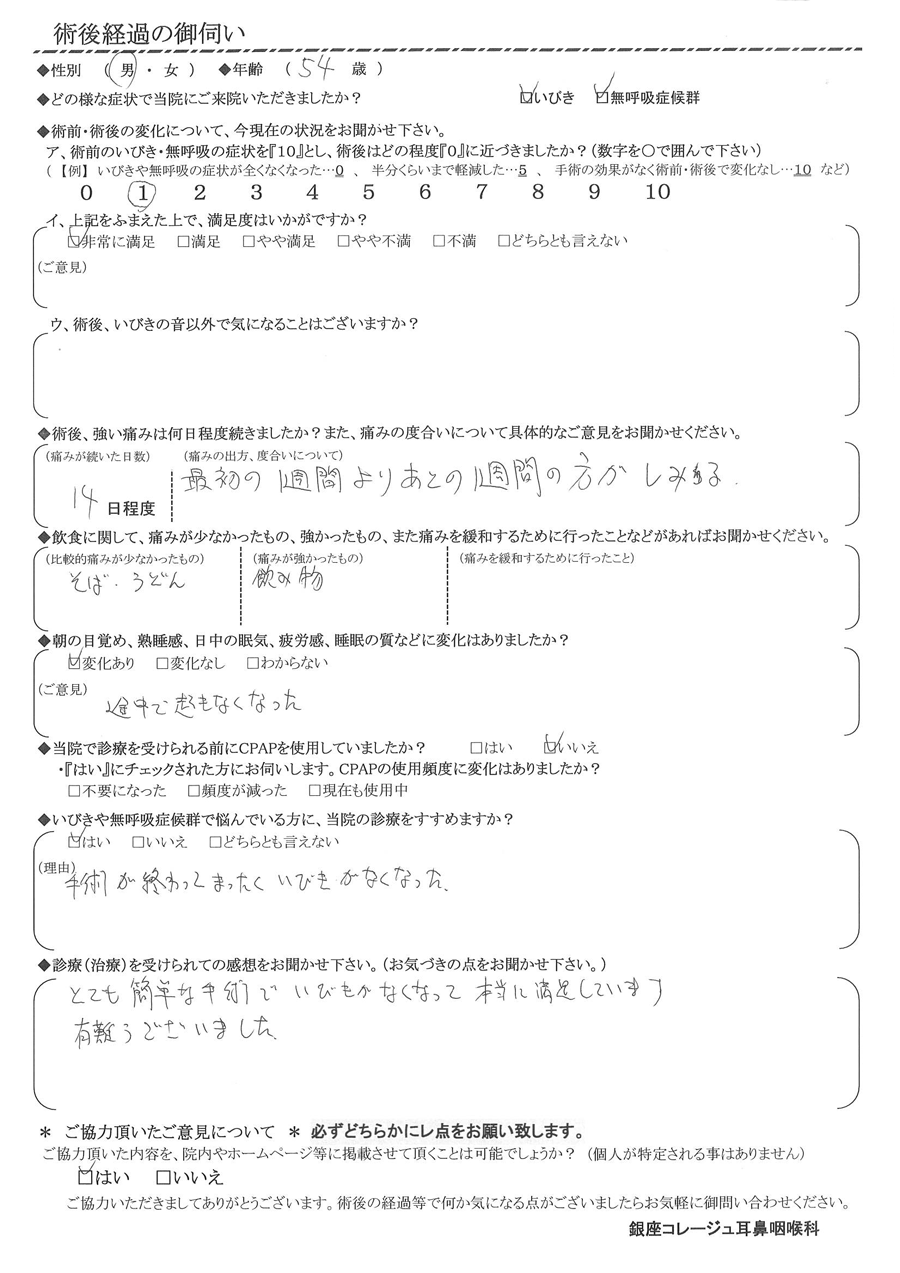 術後経過の御伺い
◆性別 (男・女) ◆年齢 (54 歳)
◆どの様な症状で当院にご来院いただきましたか? ☑いびき ☑無呼吸症候群
◆術前・術後の変化について、今現在の状況をお聞かせ下さい。
ア、術前のいびき・無呼吸の症状を『10』とし、術後はどの程度『0』に近づきましたか?(数字を〇で囲んで下さい)
(【例】いびきや無呼吸の症状が全くなくなった…0 、 半分くらいまで軽減した…5 、 手術の効果がなく術前・術後で変化なし…10 など)
0 1 2 3 4 5 6 7 8 9 10
イ、上記をふまえた上で、満足度はいかがですか?
☑非常に満足 □満足 □やや満足 □やや不満 □不満 □どちらとも言えない
(ご意見)
ウ、術後、いびきの音以外で気になることはございますか?
◆術後、強い痛みは何日程度続きましたか?また、痛みの度合いについて具体的なご意見をお聞かせください。
(痛みが続いた日数) (痛みの出方、度合いについて)
最初の1週間よりあとの1週間の方がしみる.
14 日程度
◆飲食に関して、痛みが少なかったもの、強かったもの、また痛みを緩和するために行ったことなどがあればお聞かせください。
(比較的痛みが少なかったもの) (痛みが強かったもの) (痛みを緩和するために行ったこと)
そば.うどん 飲み物
◆朝の目覚め、熟睡感、日中の眠気、疲労感、睡眠の質などに変化はありましたか?
☑変化あり □変化なし □わからない
(ご意見)
途中で起きなくなった
◆当院で診療を受けられる前にCPAPを使用していましたか? □はい ☑いいえ
・『はい』にチェックされた方にお伺いします。CPAPの使用頻度に変化はありましたか?
□不要になった □頻度が減った □現在も使用中
◆いびきや無呼吸症候群で悩んでいる方に、当院の診療をすすめますか?
☑はい □いいえ □どちらとも言えない
(理由)
手術が終わってまったくいびきがなくなった.
◆診療(治療)を受けられての感想をお聞かせ下さい。(お気づきの点をお聞かせ下さい。)
とても簡単な手術でいびきがなくなって本当に満足しています
有難うございました.
＊ ご協力頂いたご意見について ＊ 必ずどちらかにレ点をお願い致します。
ご協力頂いた内容を、院内やホームページ等に掲載させて頂くことは可能でしょうか? (個人が特定される事はありません)
☑はい □いいえ
ご協力いただきましてありがとうございます。術後の経過等で何か気になる点がございましたらお気軽に御問い合わせください。
銀座コレージュ耳鼻咽喉科